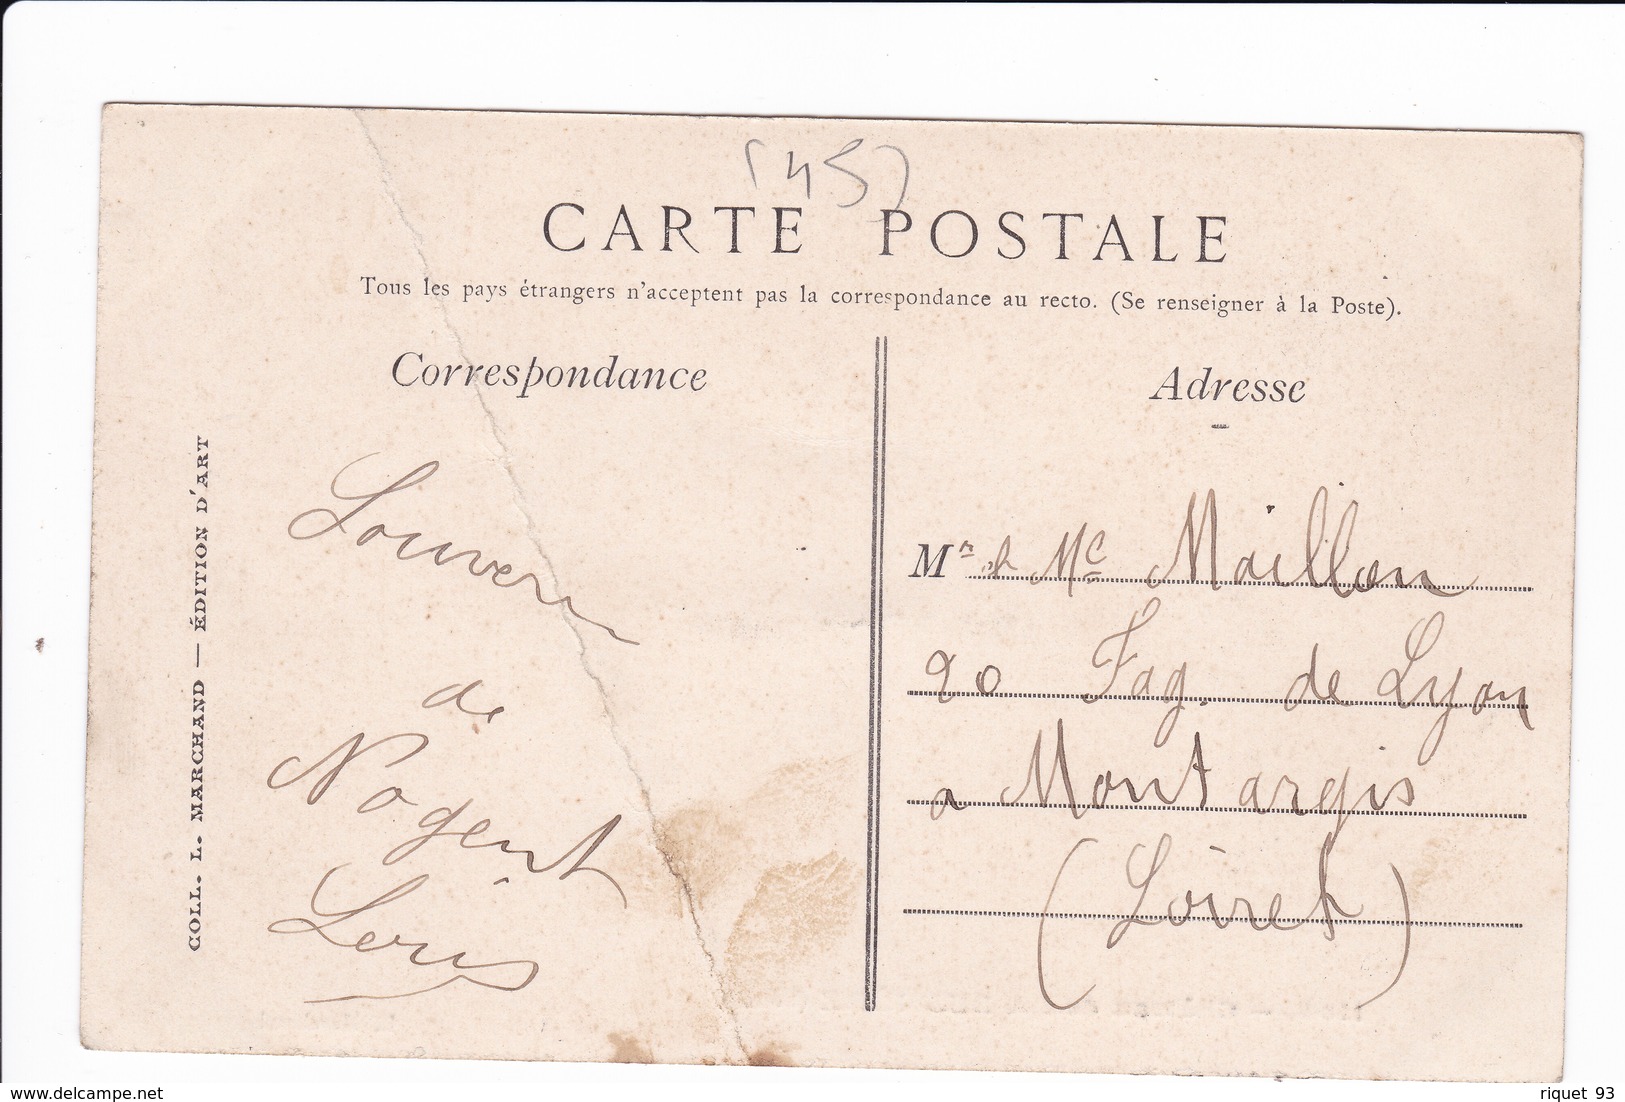 (45)
CARTE POSTALE
Tous les pays étrangers n'acceptent pas la correspondance au recto. (Se renseigner à la Poste).
Correspondance
Souven
de
Nogent
Louis
COLL. L. MARCHAND — ÉDITION D'ART
Adresse
Mr et Me Maillon
20 Fag. de Lyon
a Montargis
(Loiret)
delcampe.net
riquet 93